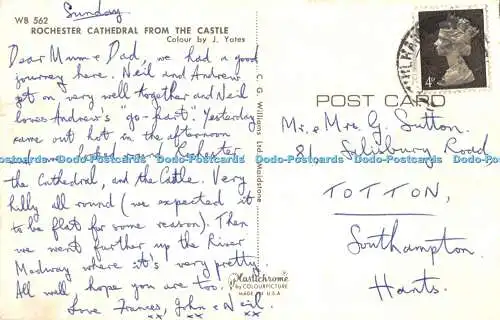 Sunday
WB 562
ROCHESTER CATHEDRAL FROM THE CASTLE
Colour by J. Yates
Dear Mum & Dad, we had a good
journey here. Neil and Andrew
get on very well together and Neil
loves Andrew's "go-kart". Yesterday
came out hot in the afternoon
looked around Rochester
the Cathedral, and the Castle. Very
hilly all round (we expected it
to be flat for some reason). Then
we went further up the River
Medway where it's very pretty.
All well, hope you are too.
Love Frances, John & Neil.
xx xx
C. G. Williams Ltd Maidstone
Plastichrome ®
BY COLOURPICTURE
MADE IN U.S.A
POST CARD
4D
Mr. & Mrs. G. Sutton.
81 Salisbury Road
TOTTON,
Southampton.
Hants.
Dodo-Postcards Dodo-Postcards Dodo-Postcards Dodo-Postcards Dodo-Postcards Dodo-Postcards